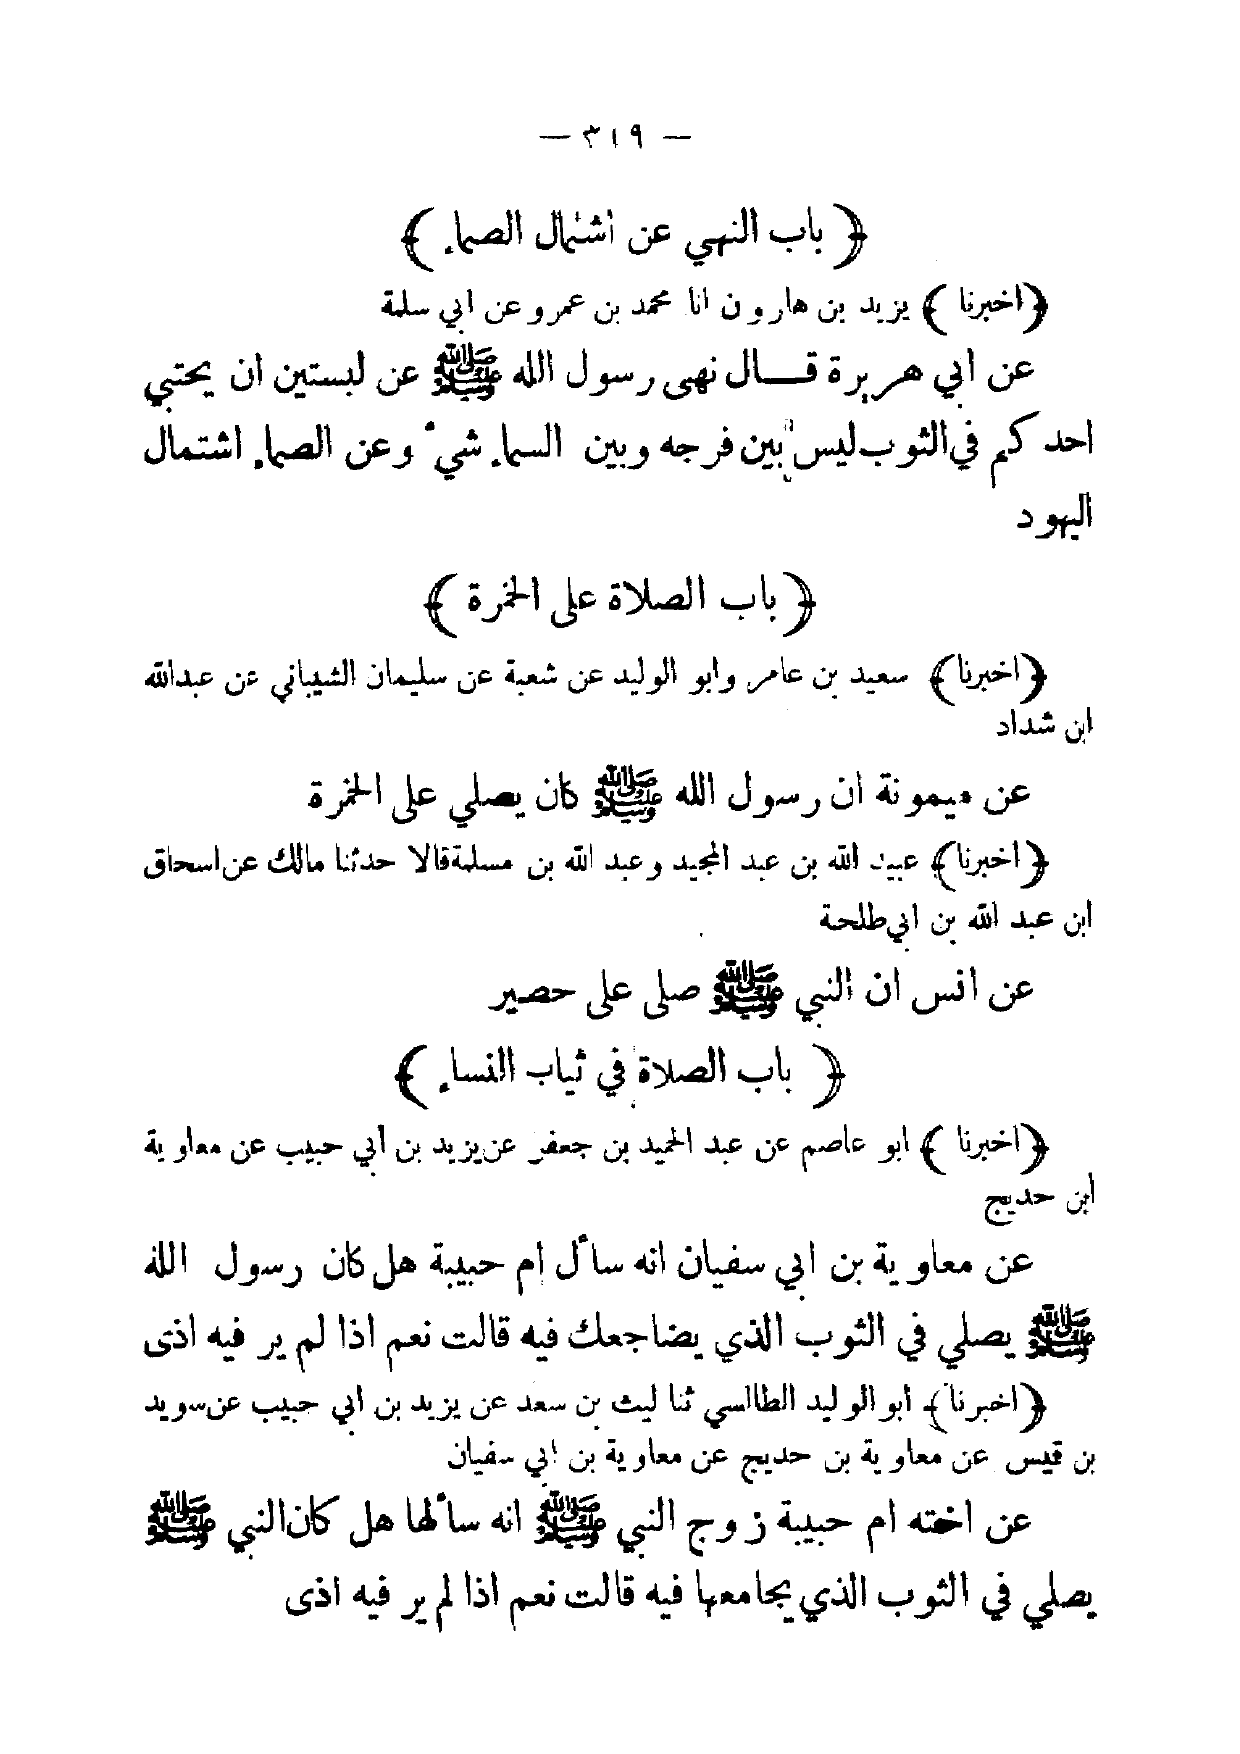 — ٣١٩ —
﴿ باب النهي عن اشتمال الصماء ﴾
﴿اخبرنا ﴾ يزيد بن هارون انا محمد بن عمرو عن ابي سلمة
عن ابي هريرة قـــال نهى رسول الله ﷺ عن لبستين ان يحتبي
احدكم في الثوب ليس بين فرجه وبين السماء شيء وعن الصماء اشتمال
اليهود
﴿ باب الصلاة على الخمرة ﴾
﴿اخبرنا﴾ سعيد بن عامر وابو الوليد عن شعبة عن سليمان الشيباني عن عبدالله
ابن شداد
عن ميمونة ان رسول الله ﷺ كان يصلي على الخمرة
﴿اخبرنا﴾ عبيد الله بن عبد المجيد وعبد الله بن مسلمة قالا حدثنا مالك عن اسحاق
ابن عبد الله بن ابي طلحة
عن انس ان النبي ﷺ صلى على حصير
﴿ باب الصلاة في ثياب النساء ﴾
﴿اخبرنا ﴾ ابو عاصم عن عبد الحميد بن جعفر عن يزيد بن أبي حبيب عن معاوية
ابن حديج
عن معاوية بن ابي سفيان انه سأل ام حبيبة هل كان رسول الله
ﷺ يصلي في الثوب الذي يضاجعك فيه قالت نعم اذا لم ير فيه اذى
﴿اخبرنا﴾ أبو الوليد الطالسي ثنا ليث بن سعد عن يزيد بن أبي حبيب عن سويد
بن قيس عن معاوية بن حديج عن معاوية بن ابي سفيان
عن اخته ام حبيبة زوج النبي ﷺ انه سألها هل كان النبي ﷺ
يصلي في الثوب الذي يجامعها فيه قالت نعم اذا لم ير فيه اذى